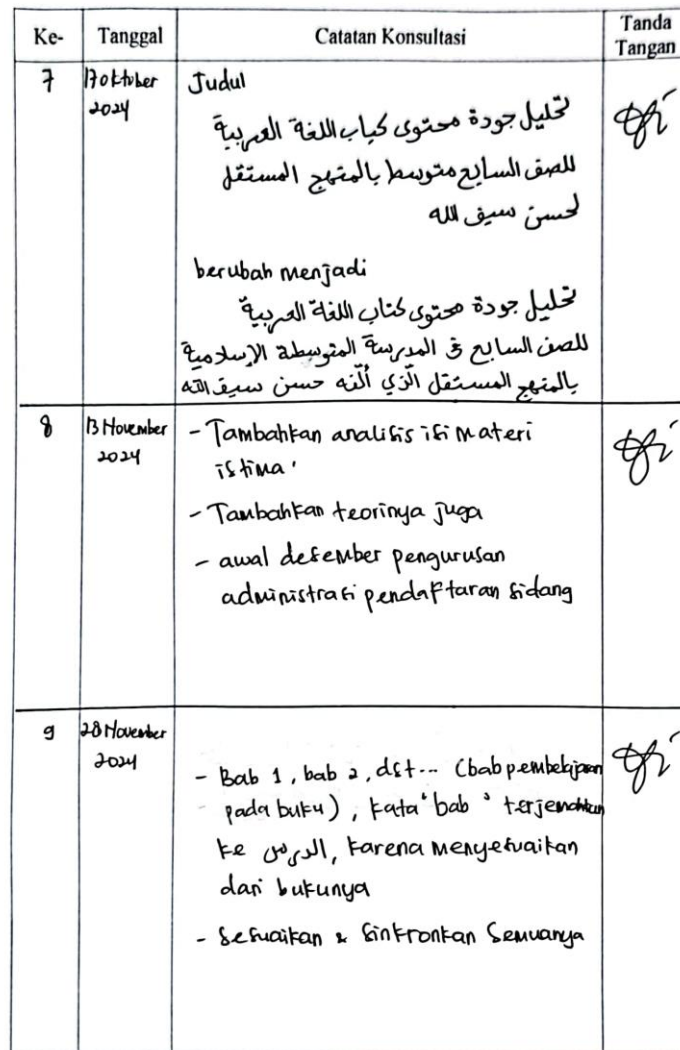 Ke- Tanggal Catatan Konsultasi Tanda Tangan
7 17 Oktober 2024
Judul
تحليل جودة محتوى كتاب اللغة العربية
للصف السابع متوسط بالمنهج المستقل
لحسن سيف الله
berubah menjadi
تحليل جودة محتوى كتاب اللغة العربية
للصف السابع في المدرسة المتوسطة الإسلامية
بالمنهج المستقل الّذي ألّفه حسن سيف الله
8 13 November 2024
- Tambahkan analisis isi materi
istima'
- Tambahkan teorinya juga
- awal desember pengurusan
administrasi pendaftaran sidang
9 28 November 2024
- Bab 1, bab 2, dst... (bab pembelajaran
pada buku), kata "bab" terjemahkan
ke الدرس, karena menyesuaikan
dari bukunya
- Sesuaikan & Sinkronkan Semuanya